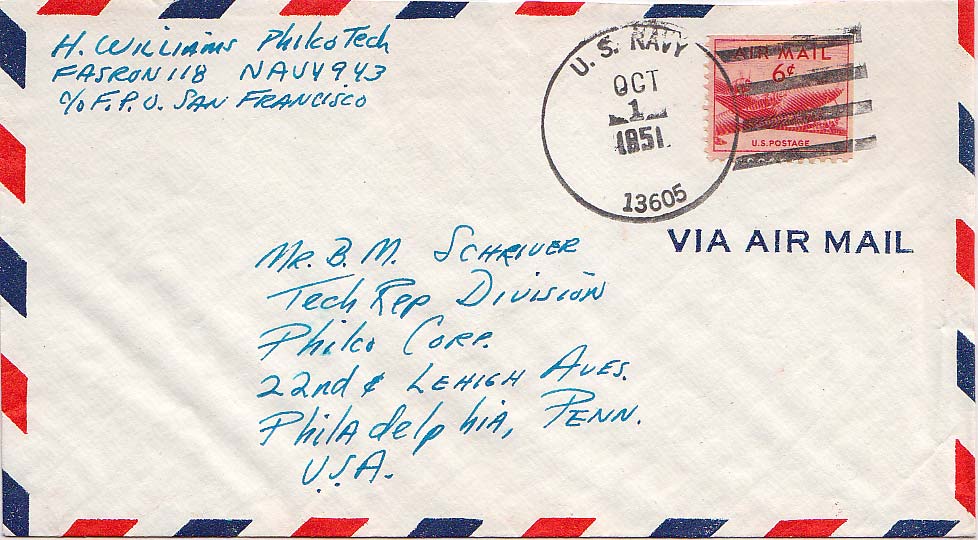 H. Williams Philco Tech
FASRON 118 NAVY 943
c/o F.P.O. San Francisco
U.S. NAVY
OCT
1
1951
13605
AIR MAIL
6¢
U.S. POSTAGE
VIA AIR MAIL
Mr. B. M. Schriver
Tech Rep Division
Philco Corp.
22nd & Lehigh Aves.
Philadelphia, Penn.
U.S.A.